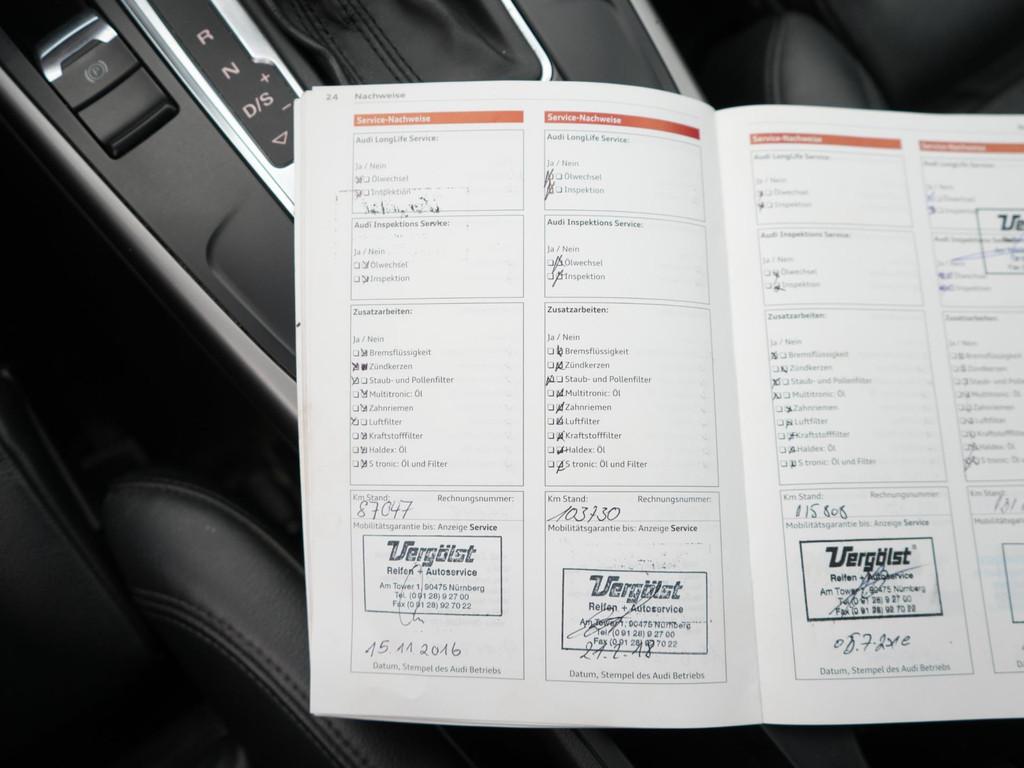 R
N
+
D/S -
24 Nachweise
Service-Nachweise
Audi LongLife Service:
Ja / Nein
Ölwechsel
Inspektion
Audi Inspektions Service:
Ja / Nein
Ölwechsel
Inspektion
Zusatzarbeiten:
Ja / Nein
Bremsflüssigkeit
Zündkerzen
Staub- und Pollenfilter
Multitronic: Öl
Zahnriemen
Luftfilter
Kraftstofffilter
Haldex: Öl
S tronic: Öl und Filter
Km Stand: Rechnungsnummer:
87047
Mobilitätsgarantie bis: Anzeige Service
Vergölst
Reifen + Autoservice
Am Tower 1, 90475 Nürnberg
Tel. (0 91 28) 9 27 00
Fax (0 91 28) 92 70 22
15.11.2016
Datum, Stempel des Audi Betriebs
Service-Nachweise
Audi LongLife Service:
Ja / Nein
Ölwechsel
Inspektion
Audi Inspektions Service:
Ja / Nein
Ölwechsel
Inspektion
Zusatzarbeiten:
Ja / Nein
Bremsflüssigkeit
Zündkerzen
Staub- und Pollenfilter
Multitronic: Öl
Zahnriemen
Luftfilter
Kraftstofffilter
Haldex: Öl
S tronic: Öl und Filter
Km Stand: Rechnungsnummer:
103730
Mobilitätsgarantie bis: Anzeige Service
Vergölst
Reifen + Autoservice
Am Tower 1, 90475 Nürnberg
Tel. (0 91 28) 9 27 00
Fax (0 91 28) 92 70 22
Datum, Stempel des Audi Betriebs
Service-Nachweise
Audi LongLife Service:
Ja / Nein
Ölwechsel
Inspektion
Audi Inspektions Service:
Ja / Nein
Ölwechsel
Inspektion
Zusatzarbeiten:
Ja / Nein
Bremsflüssigkeit
Zündkerzen
Staub- und Pollenfilter
Multitronic: Öl
Zahnriemen
Luftfilter
Kraftstofffilter
Haldex: Öl
S tronic: Öl und Filter
Km Stand: Rechnungsnummer:
115808
Mobilitätsgarantie bis: Anzeige Service
Vergölst
Reifen + Autoservice
Am Tower 1, 90475 Nürnberg
Tel. (0 91 28) 9 27 00
Fax (0 91 28) 92 70 22
Datum, Stempel des Audi Betriebs
Service-Nachweise
Audi LongLife Service:
Ja / Nein
Ölwechsel
Ja / Nein
Ölwechsel
Inspektion
Zusatzarbeiten:
Ja / Nein
Bremsflüssigkeit
Zündkerzen
Staub- und Pollenfilter
Multitronic: Öl
Zahnriemen
Luftfilter
Kraftstofffilter
Haldex: Öl
S tronic: Öl und
Km Stand: